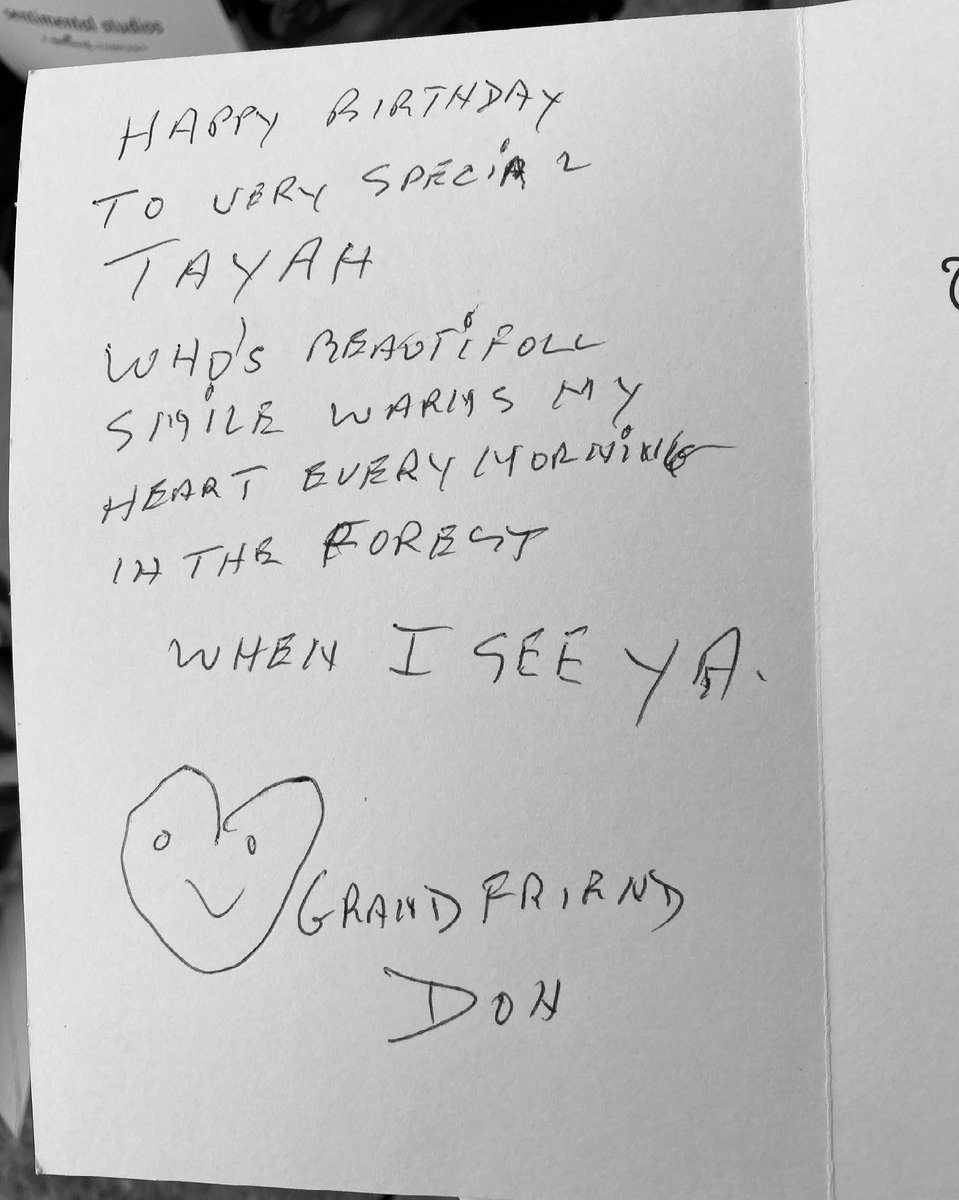 sentimental studios
HAPPY BIRTHDAY
TO VERY SPECiAL
TAYAH
WHO'S BEAUTiFULL
SMiLE WARMS MY
HEART EVERY MORNiNG
IN THE FOREST
WHEN I SEE YA.
GRAND FRIEND
DON